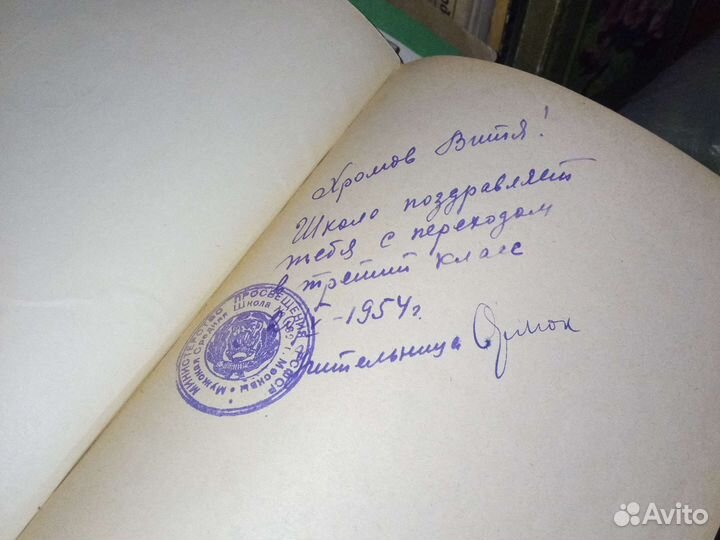 Хромов Витя!
Школа поздравляет
тебя с переходом
в третий класс
V-1954 г.
учительница
МИНИСТЕРСТВО ПРОСВЕЩЕНИЯ РСФСР
Мужская Средняя Школа г. Москвы
Avito